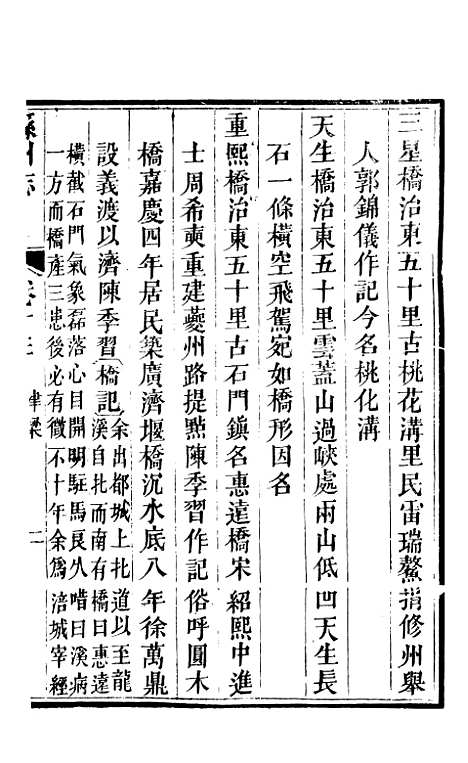 三星橋治東五十里古桃花溝里民雷瑞鰲指修州舉
人郭錦儀作記今名桃化溝
天生橋治東五十里雲蓋山過峽處兩山低凹天生長
石一條橫空飛駕宛如橋形因名
重熙橋治東五十里古石門鎮名惠遠橋宋紹熙中進
士周希奭重建夔州路提點陳季習作記俗呼圓木
橋嘉慶四年居民築廣濟堰橋沉水底八年徐萬鼎
設義渡以濟陳季習橋記余出都城上北道以至龍
溪自北而南有橋曰惠遠
橫截石門氣象磊落心目開明駐馬良久喈曰溪病
一方而橋產三患後必有徵不十年余為涪城宰經
州志
津梁
二